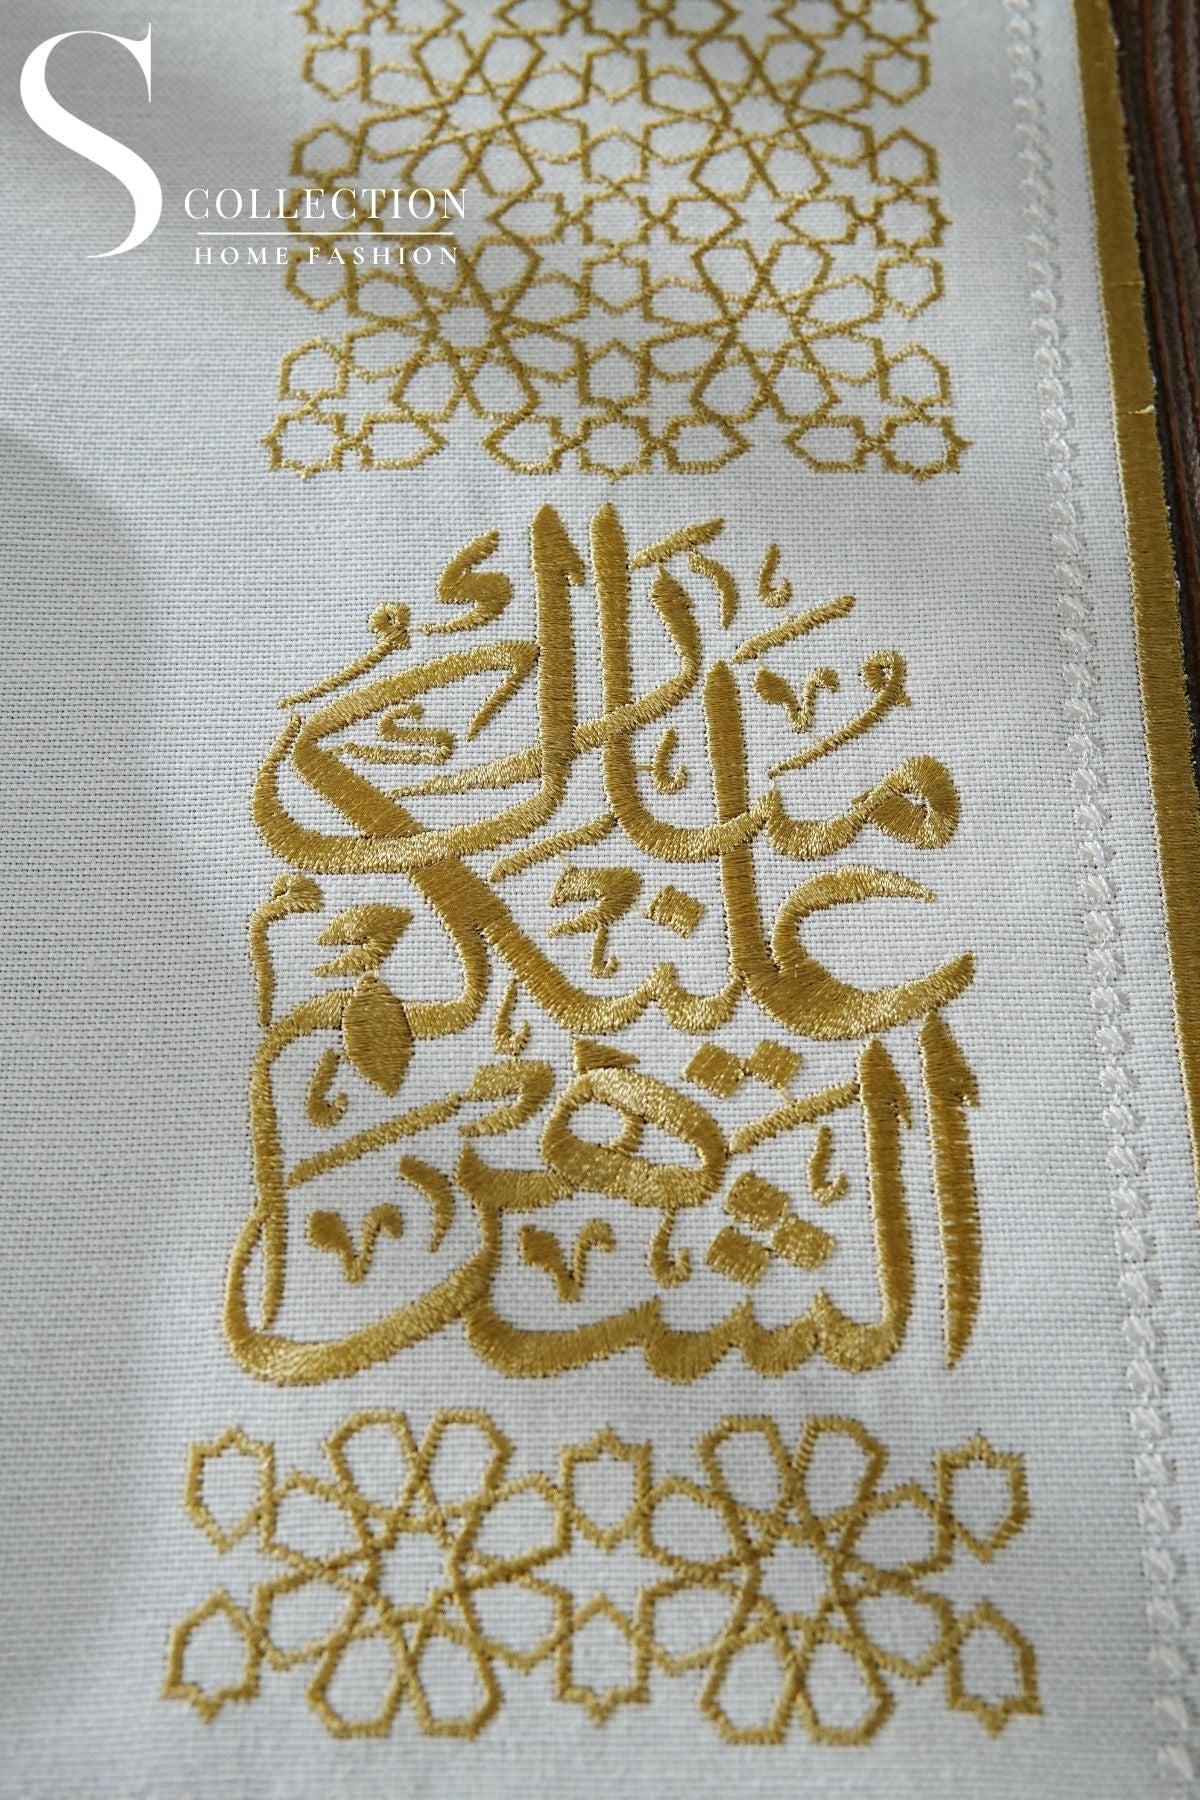 S
COLLECTION
HOME FASHION
مبارك
عليكم
الشهر